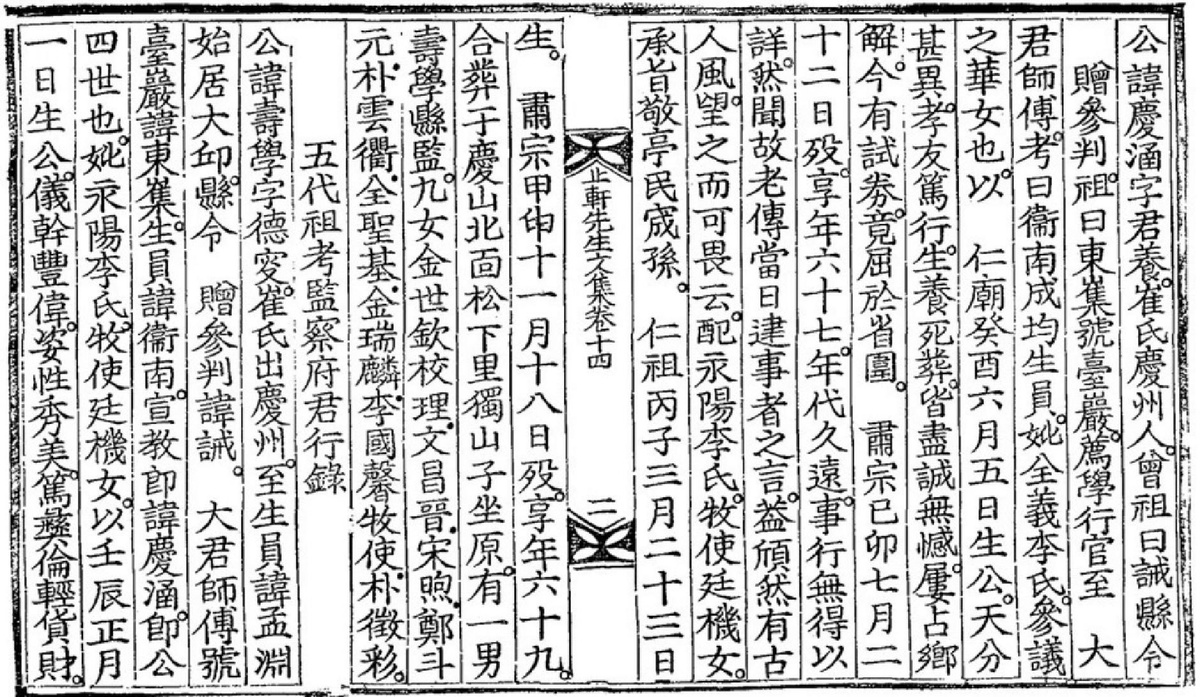 公諱慶涵字君養。崔氏慶州人。曾祖曰誠縣令
贈參判。祖曰東㠍號臺巖。薦學行官至　大
君師傅。考曰衞南成均生員。妣全義李氏。參議
之華女也。以　仁廟癸酉六月五日生公。天分
甚異。孝友篤行。生養死葬。皆盡誠無憾。屢占鄉
解。今有試券。竟屈於省圍。　肅宗己卯七月二
十二日歿。享年六十七。年代久遠。事行無得以
詳。然聞故老傳當日逮事者之言。益頎然有古
人風。望之而可畏云。配永陽李氏。牧使廷機女。
承旨敬亭民宬孫。　仁祖丙子三月二十三日
止軒先生文集卷十四　二
生。　肅宗甲申十一月十八日歿。享年六十九。
合葬于慶山北面松下里獨山子坐原。有一男
壽學縣監。九女金世欽校理。文昌晉．宋煦．鄭斗
元．朴雲衢．全聖基．金瑞麟．李國馨牧使．朴徵彩。
五代祖考監察府君行錄
公諱壽學字德叜。崔氏出慶州。至生員諱孟淵
始居大邱。縣令　贈參判諱誡。　大君師傅號
臺巖諱東㠍。生員諱衞南。宣教郎諱慶涵。卽公
四世也。妣永陽李氏。牧使廷機女。以壬辰正月
一日生公。儀幹豐偉。姿性秀美。篤彝倫輕貨財。